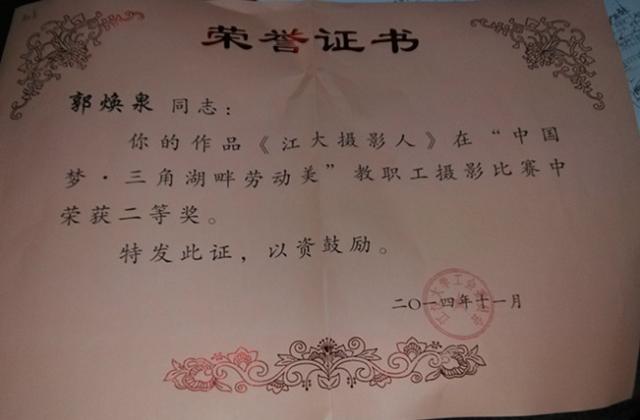 荣誉证书
郭焕泉 同志：
你的作品《江大摄影人》在“中国
梦·三角湖畔劳动美”教职工摄影比赛中
荣获二等奖。
特发此证，以资鼓励。
二〇一四年十一月